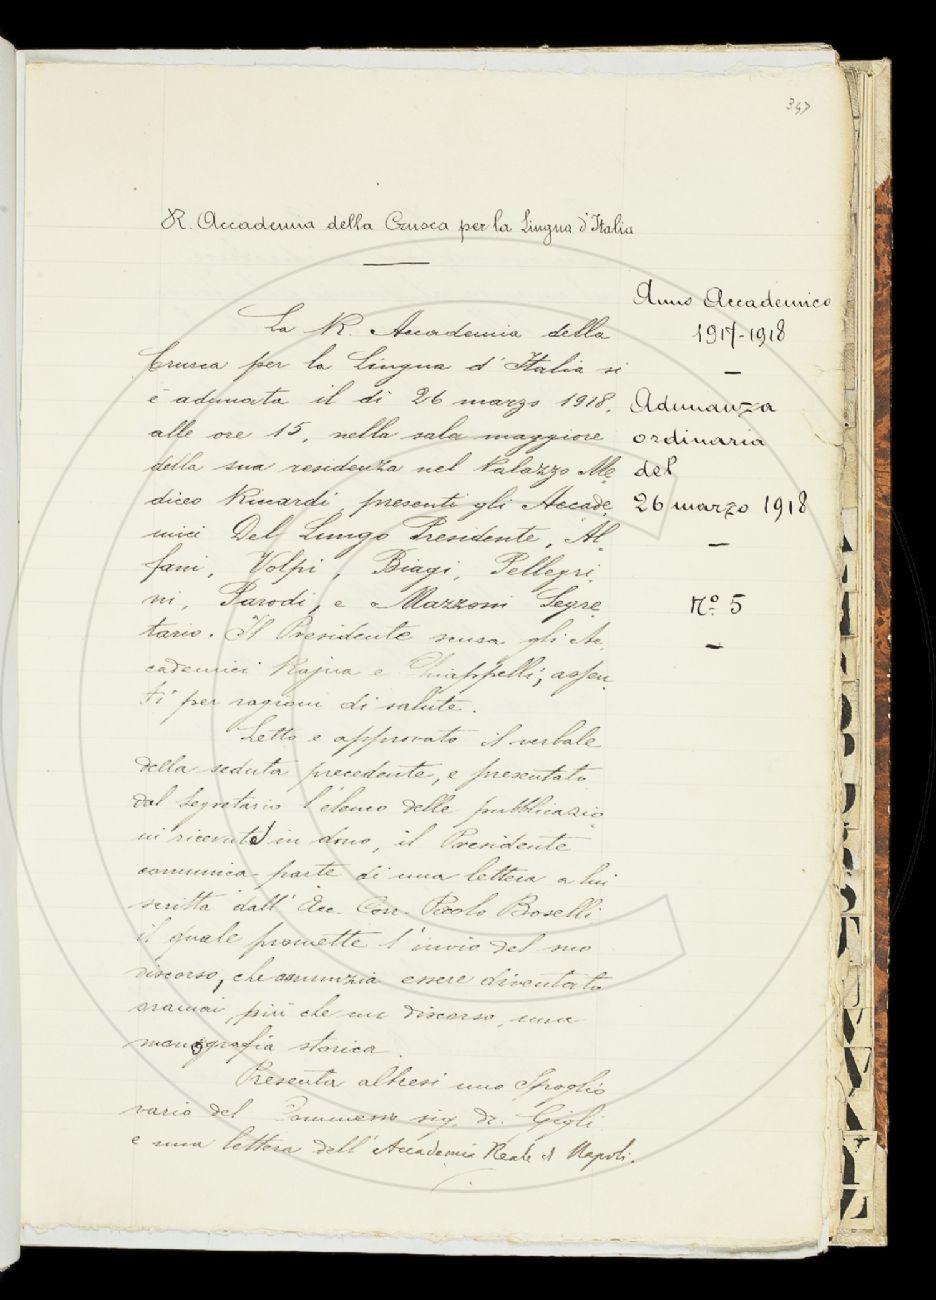 347
R. Accademia della Crusca per la Lingua d'Italia
Anno Accademico
1917-1918
Adunanza
ordinaria
del
26 marzo 1918
N.º 5
La R. Accademia della
Crusca per la Lingua d'Italia si
è adunata il dì 26 marzo 1918,
alle ore 15, nella sala maggiore
della sua residenza nel Palazzo Me-
diceo Riccardi, presenti gli Accade-
mici Del Lungo Presidente, Al-
fani, Volpi, Biagi, Pellegri-
ni, Parodi, e Mazzoni Segre-
tario. Il Presidente scusa gli Ac-
cademici Rajna e Chiappelli, assen-
ti per ragioni di salute.
Letto e approvato il verbale
della seduta precedente, e presentato
dal Segretario l'elenco delle pubblicazio-
ni ricevute in dono, il Presidente
comunica parte di una lettera a lui
scritta dall'Acc. Corr. Paolo Boselli
il quale promette l'invio del suo
discorso, che annunzia essere diventato
oramai, più che un discorso, una
monografia storica.
Presenta altresì uno Spoglio
vario del Commesso sig. dr. Gigli
e una lettera dell'Accademia Reale di Napoli.